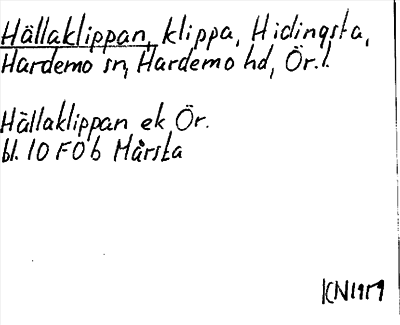 Hällaklippan, klippa, Hidingsta,
Hardemo sn, Hardemo hd, Ör.l.
Hällaklippan ek Ör.
bl. 10 F 0 b Mårsta